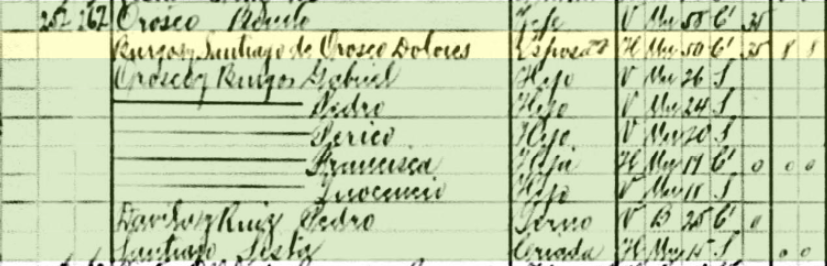 257 267 Orosco Jefe V Mu 58 C 35
Burgos y Santiago de Orosco Dolores Esposa H Mu 50 C 35 8 8
Orosco y Burgos Gabriel Hijo V Mu 26 S
Pedro Hijo V Mu 24 S
Perico Hijo V Mu 20 S
Francisca Hija H Mu 19 C 0 0 0
Inocencio Hijo V Mu 11 S
Davila y Ruiz Pedro Yerno V B 25 C 0
Santiago Sista Criada H Mu 15 S 0 0